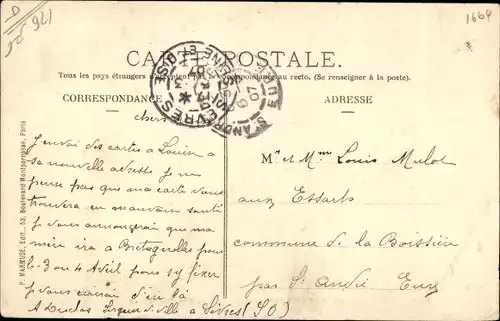 1664
CARTE POSTALE.
Tous les pays étrangers n'acceptent pas la correspondance au recto. (Se renseigner à la poste).
CORRESPONDANCE
ADRESSE
chers
J'envoi des cartes à Louise a
sa nouvelle adresse Je ne
pense pas que ma carte vous
trouvera en mauvaise santé
Je vous annonçerai que ma
mère ira a Bretagnolles pour
le 3 ou 4 Avril pour s'y fixer
Je vous
A Duclos Sergent de ville a Sèvres (SO)
Mr et Mme Louis Mulot
aux Essarts
commune de la Boissière
par St André Eure
SEVRES
SEINE ET OISE
ST ANDRE
EURE
07
P. MARMUSE, Edit., 53, Boulevard Montparnasse, Paris